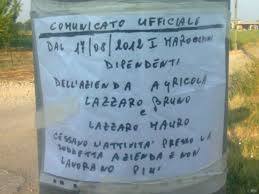 COMUNICATO UFFICIALE
DAL 17/08/2012 I MAROCCHINI
DIPENDENTI
DELL'AZIENDA AGRICOLA
LAZZARO BRUNO
E
LAZZARO MAURO
CESSANO L'ATTIVITA' PRESSO LA
SUDDETTA AZIENDA E NON
LAVORANO PIU'